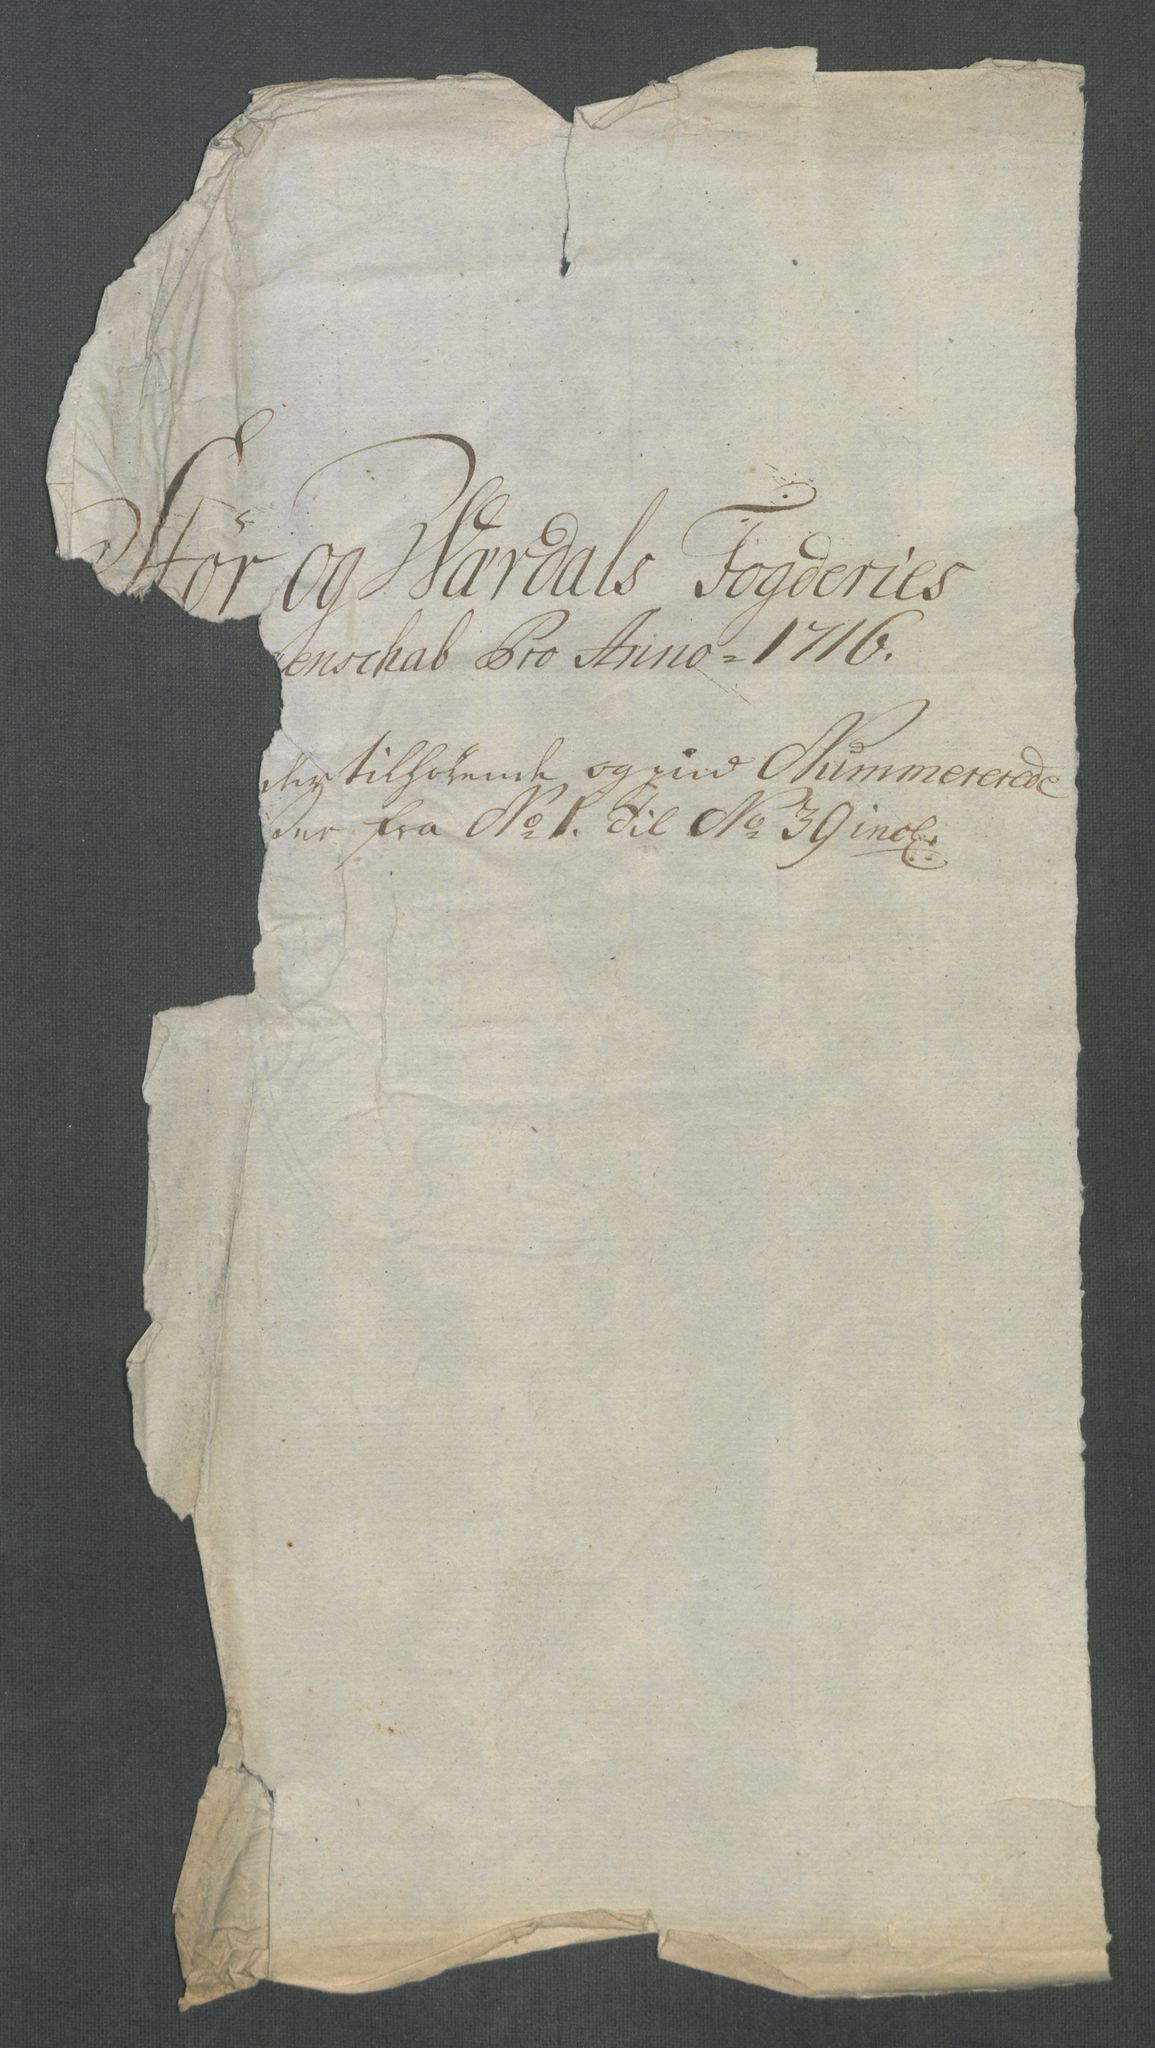 Stör og Wærdals Fogderies
enschab Pro Anno = 1716.
tilhörende og Nummererede
fra No 1. til No 39 incl: